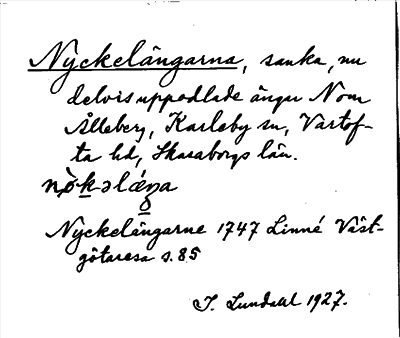 Nyckelängarna, sanka, nu
delvis uppodlade ängar N om
Ålleberg, Karleby sn, Vartof-
ta hd, Skaraborgs län.
Nyckelängarne 1747 Linné Väst-
götaresa s. 85
I. Lundahl 1927.